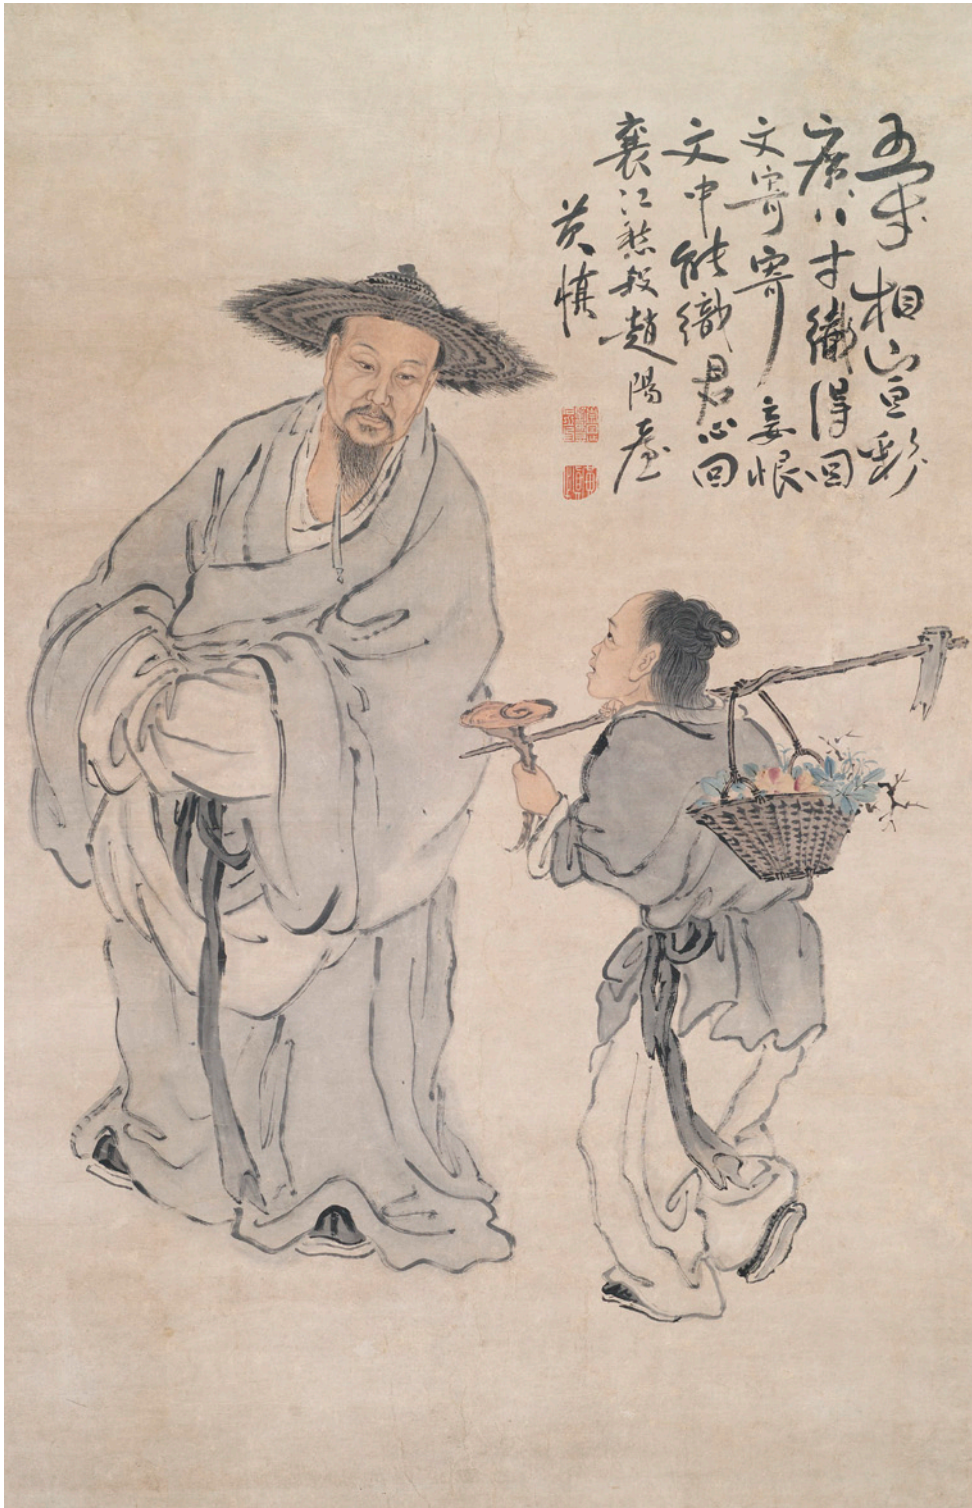 五采相宣
廣八寸織得回
文寄寄妾恨
文中能織君心回
襄江愁殺趙陽臺
黃慎